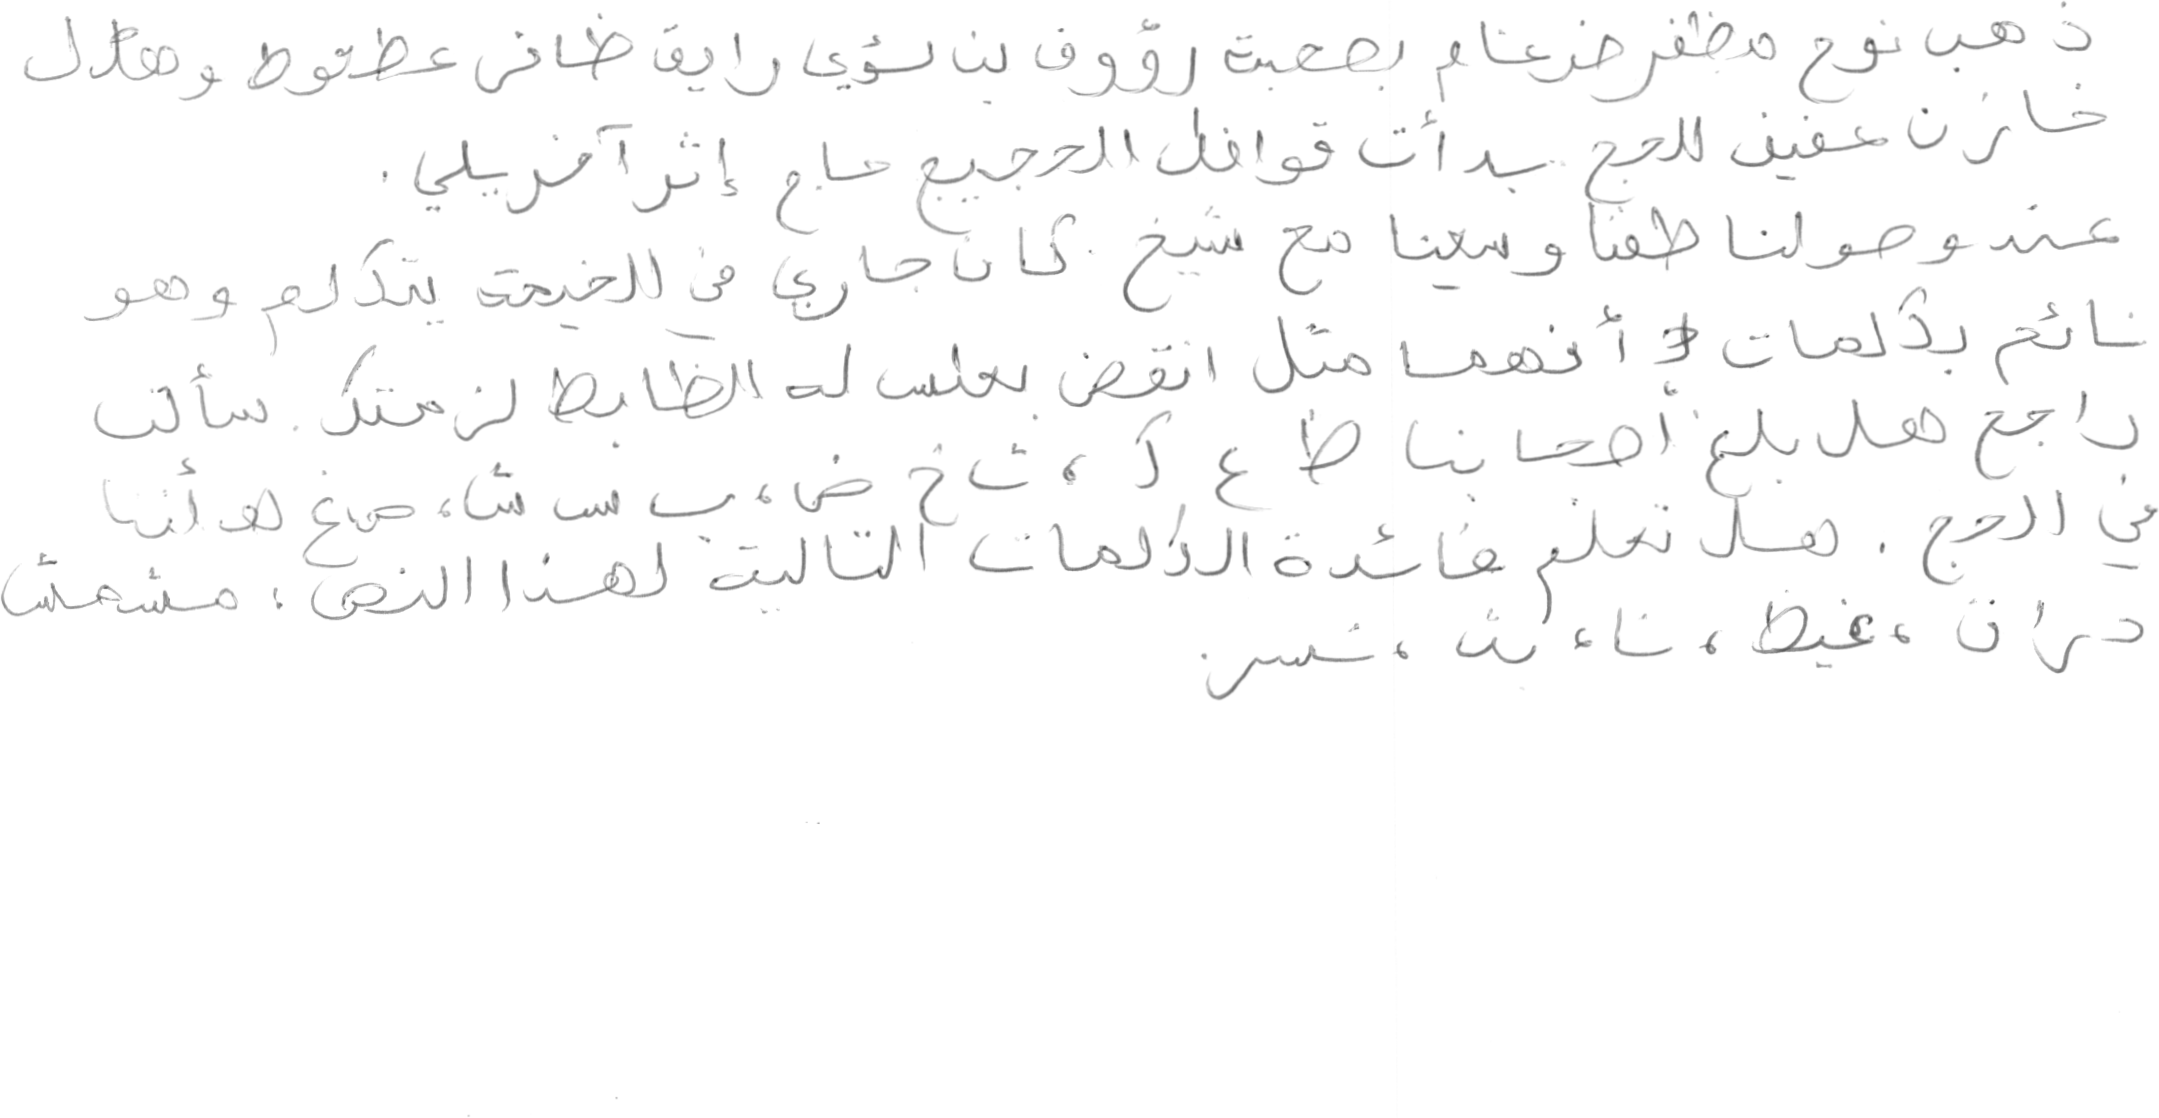 ذهب نوح مظفر ضرغام بصحبة رؤوف بن لؤي رايق ظافر عطعوط وهلال
خازن عفيف للحج. بدأت قوافل الحجيج حاج إثر آخر يلي.
عند وصولنا طفنا وسعينا مع شيخ. كان جاري في الخيمة يتكلم وهو
نائم بكلمات لا أفهمها مثل انقض بعلس له الظابط لزمتك. سألت
راجح هل بلغ أصحابنا ط ع ك، ث خ ض، ب س ش، ص غ هـ أننا
في الحج. هل تعلم فائدة الكلمات التالية لهذا النص: مشمش
حران، غيظ، نا، بث، نسر.